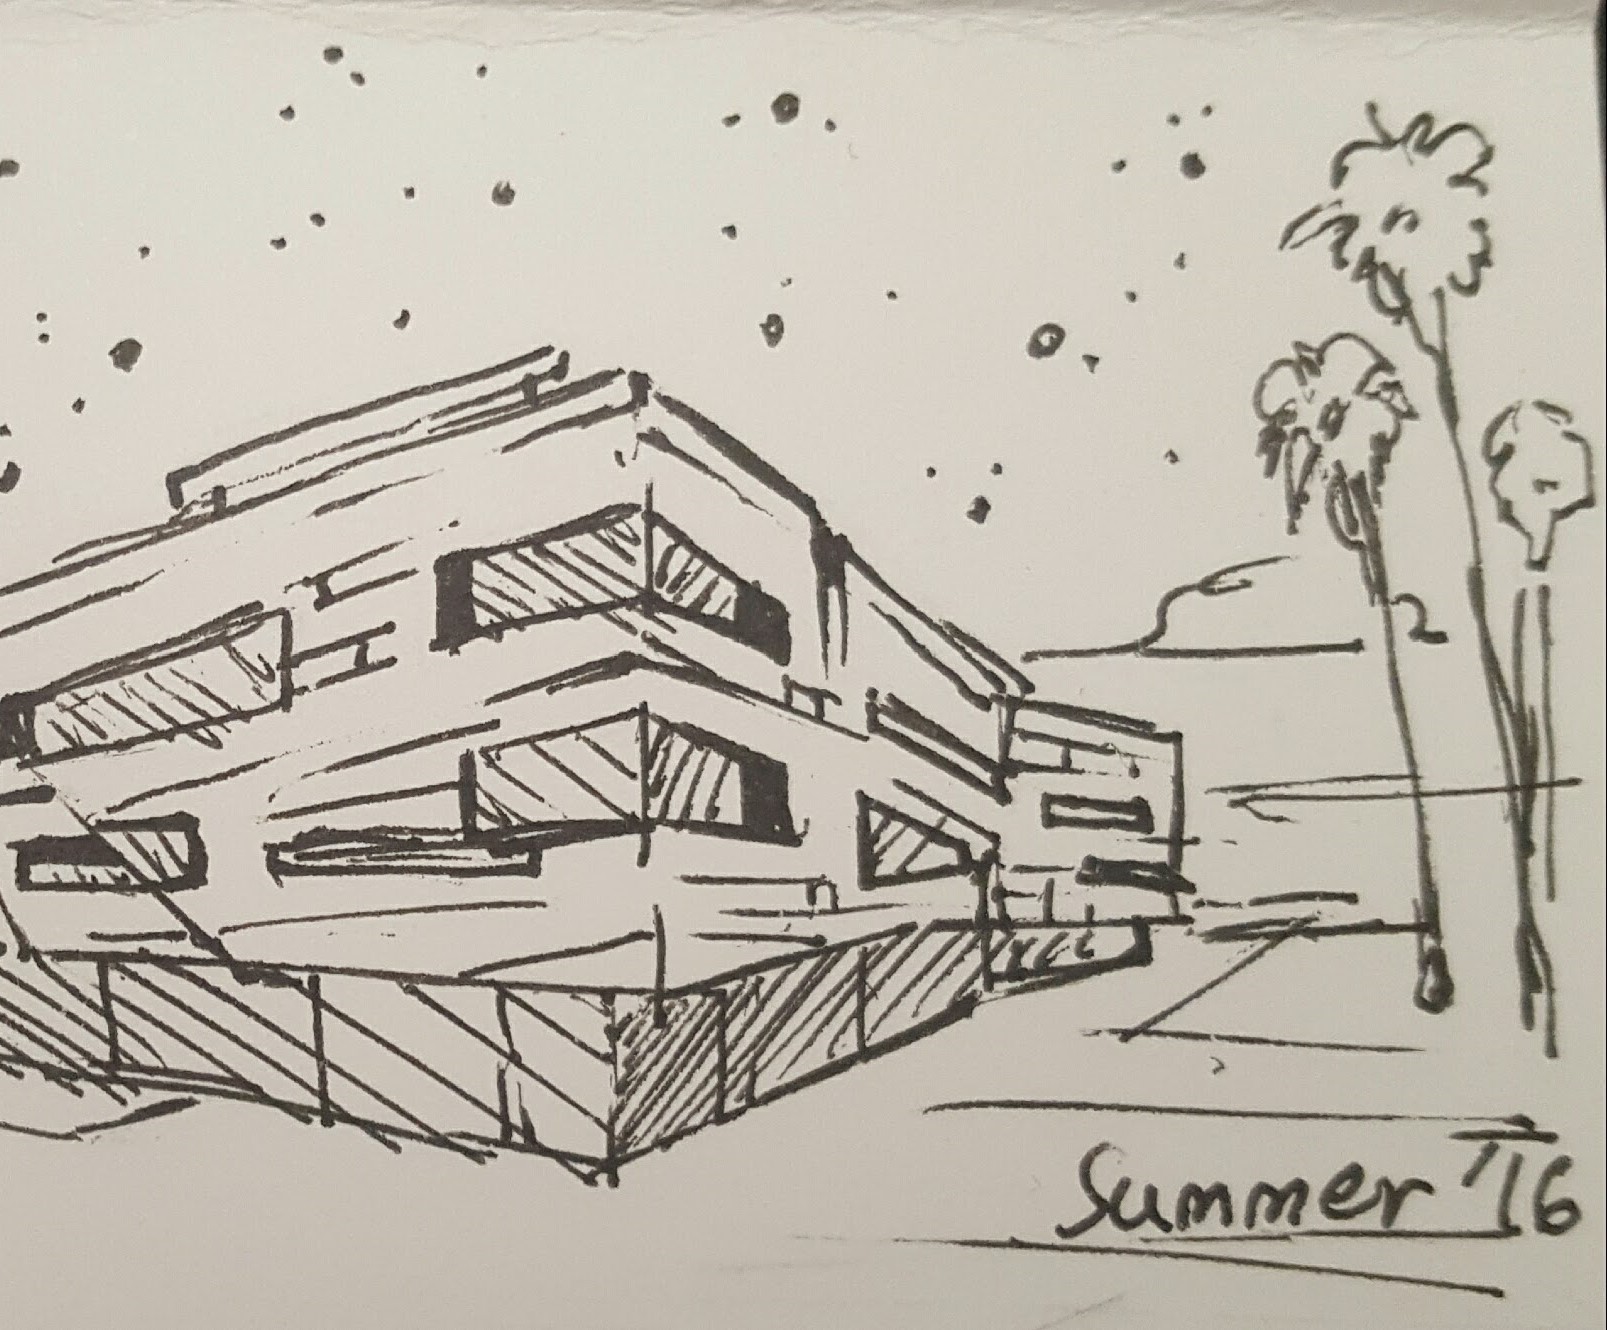 Summer '16